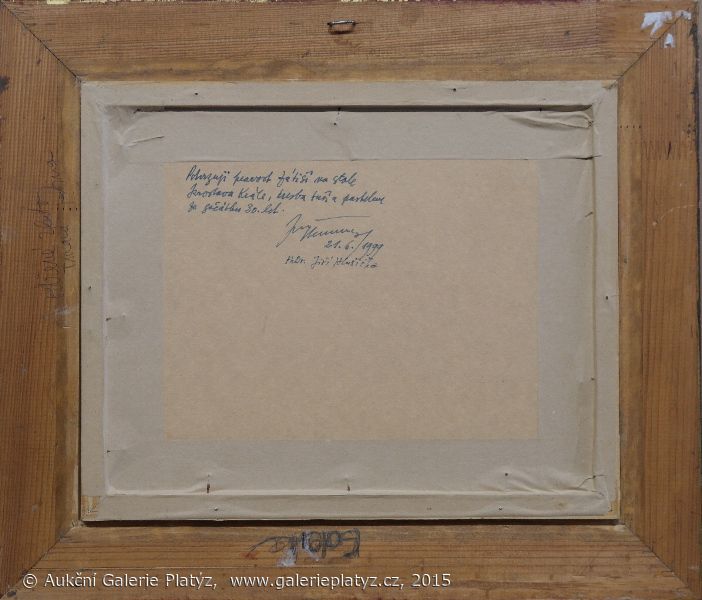 Potvrzuji pravost Zátiší na stole
Jaroslava Krále, kresba tuší a pastelem
ze začátku 30. let.
21. 6. 1999
PhDr. Jiří Hlušička
Galerie
© Aukční Galerie Platýz, www.galerieplatyz.cz, 2015